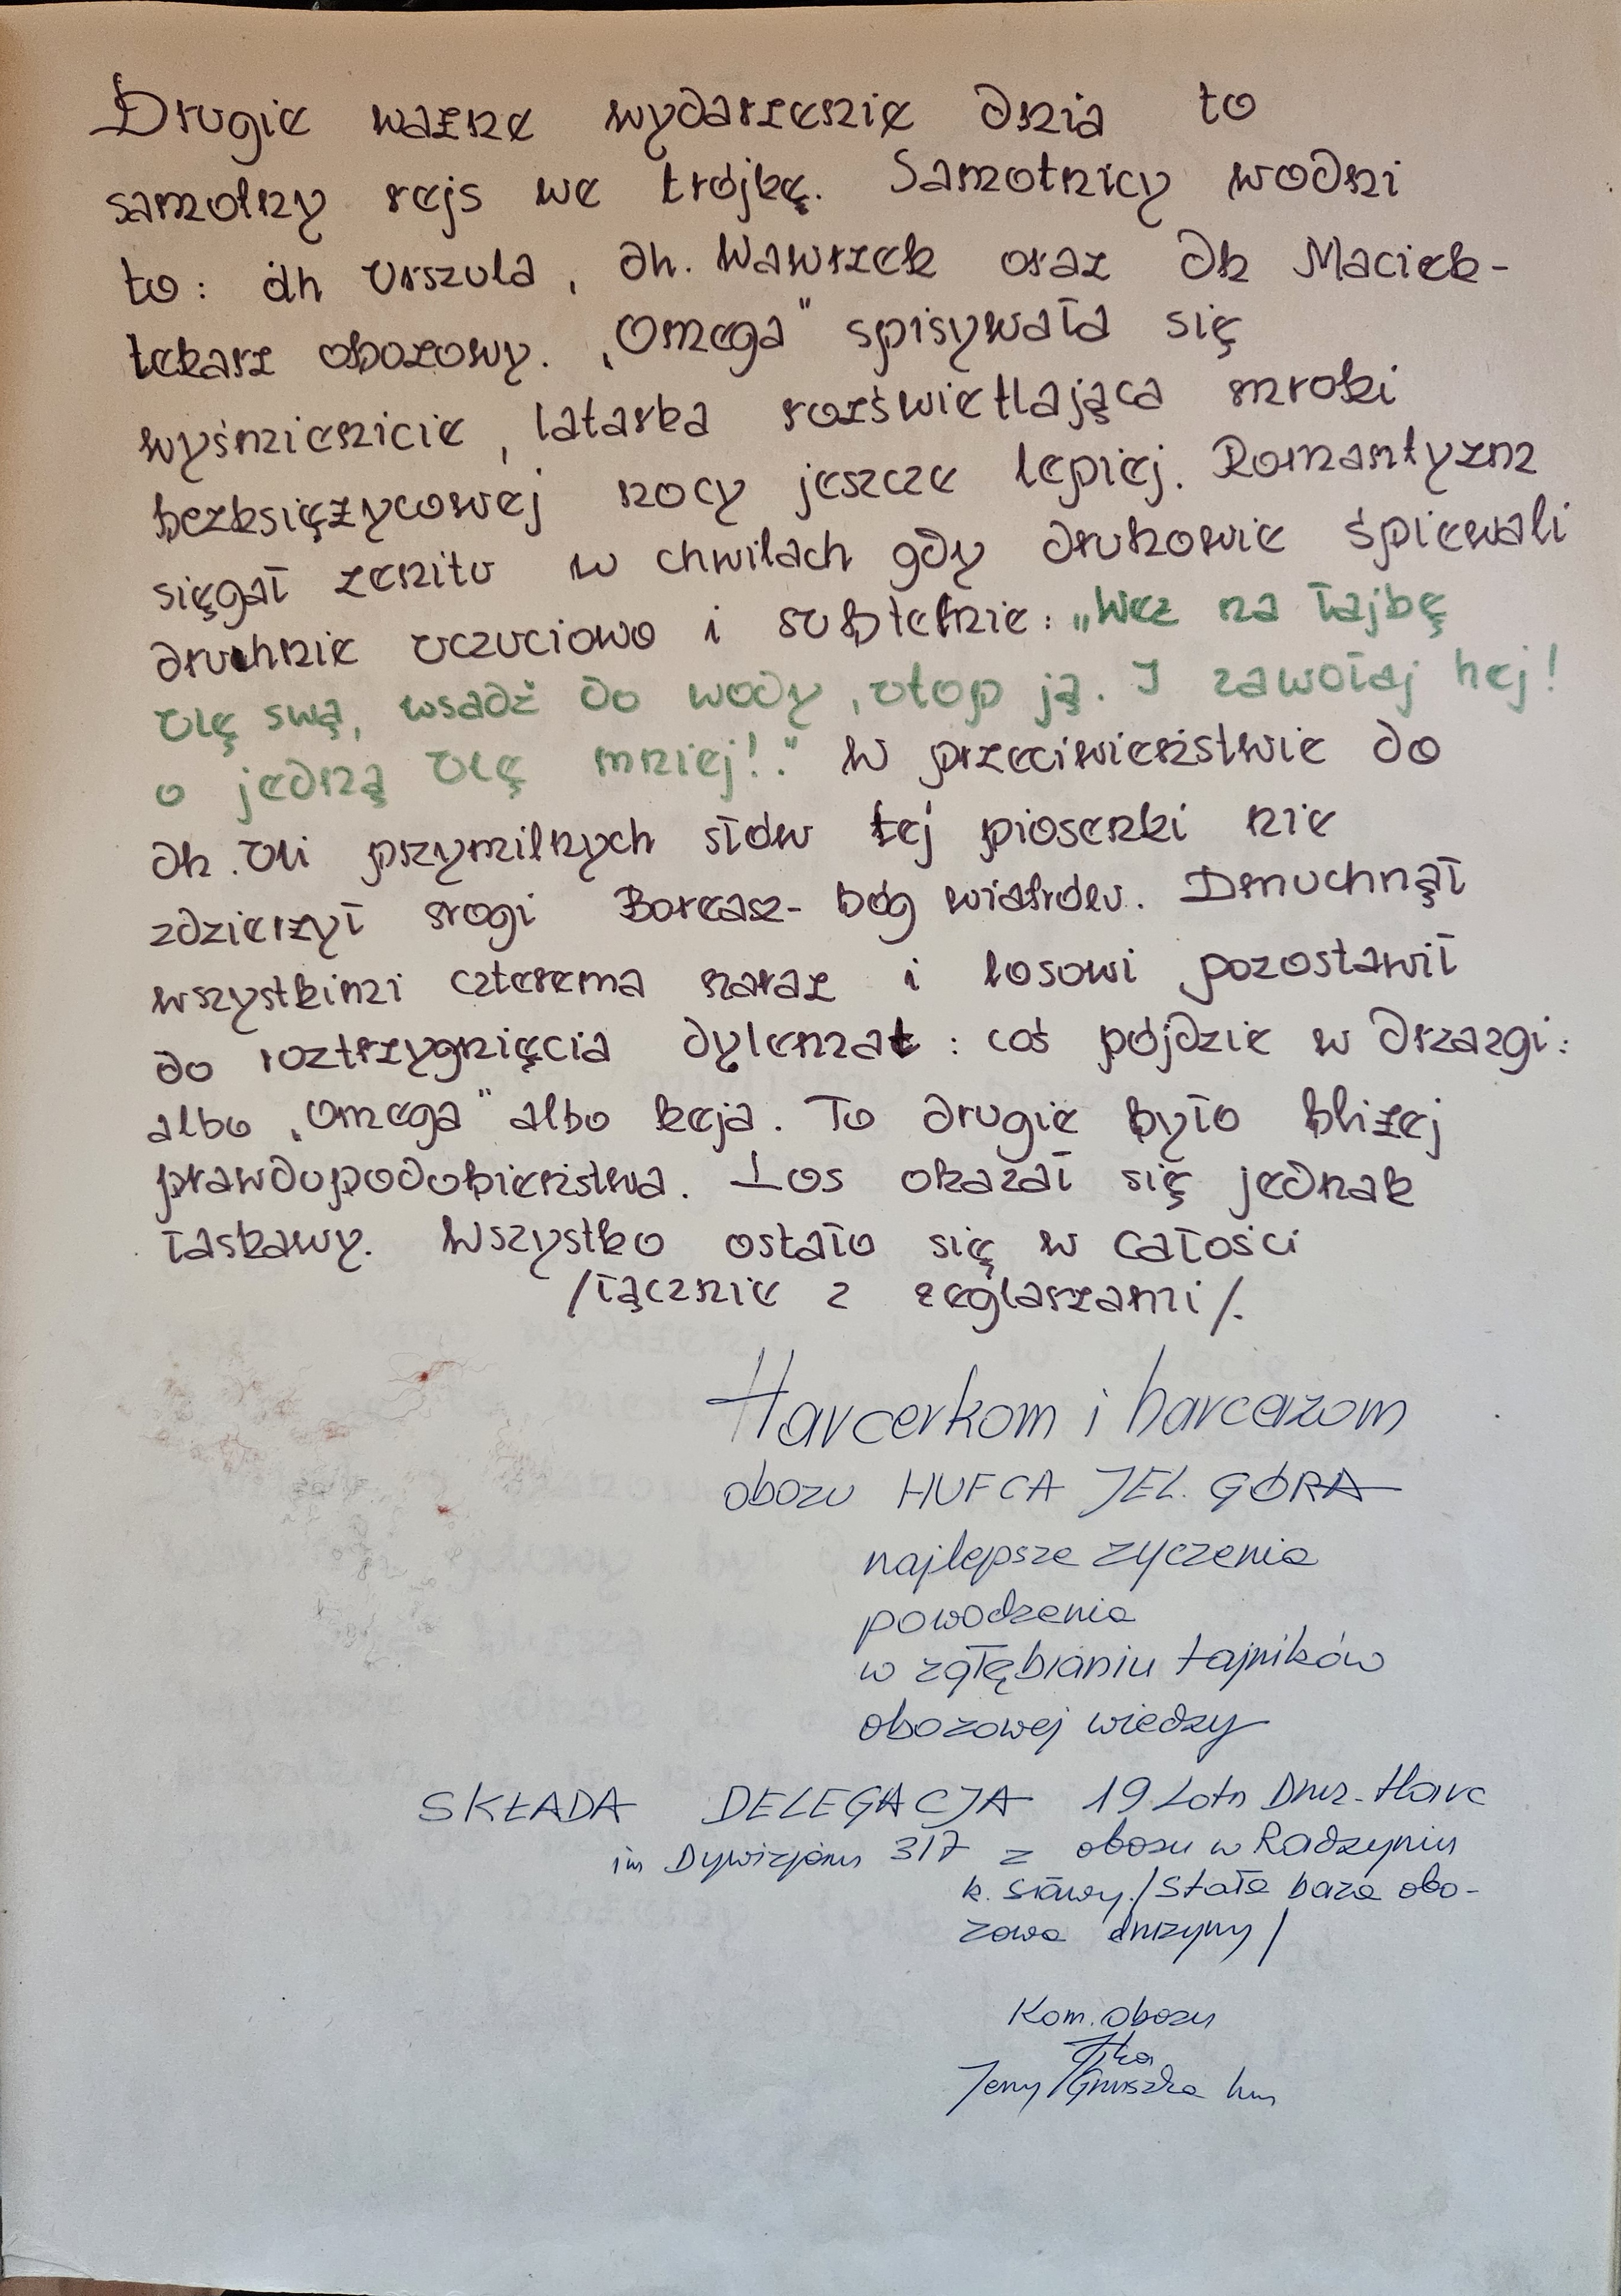 Drugie ważne wydarzenie dnia to
samotny rejs we trójkę. Samotnicy wodni
to: dh Urszula, dh. Wawrzek oraz dh Maciek-
lekarz obozowy. „Omega" spisywała się
wyśmienicie, latarka rozświetlająca mroki
bezksiężycowej nocy jeszcze lepiej. Romantyzm
sięgał zenitu w chwilach gdy druhowie śpiewali
druhnie uczuciowo i subtelnie: „Weź na łajbę
Ulę swą, wsadź do wody, utop ją. I zawołaj hej!
o jedną Ulę mniej!." W przeciwieństwie do
dh. Uli przymilnych słów tej piosenki nie
zdzierżył srogi Boreasz- bóg wiatrów. Dmuchnął
wszystkimi czterema naraz i losowi pozostawił
do roztrzygnięcia dylemat: coś pójdzie w drzazgi:
albo „Omega" albo keja. To drugie było bliżej
prawdopodobieństwa. Los okazał się jednak
łaskawy. Wszystko ostało się w całości
/łącznie z żeglarzami/.
Harcerkom i harcerzom
obozu HUFCA JEL. GÓRA
najlepsze życzenia
powodzenia
w zgłębianiu tajników
obozowej wiedzy
SKŁADA DELEGACJA 19 Lotn Druż. Harc
im Dywizjonu 317 z obozu w Radzyniu
k. Sławy./Stała baza obo-
zowa drużyny/
Kom. obozu
Jerzy Gruszka hm